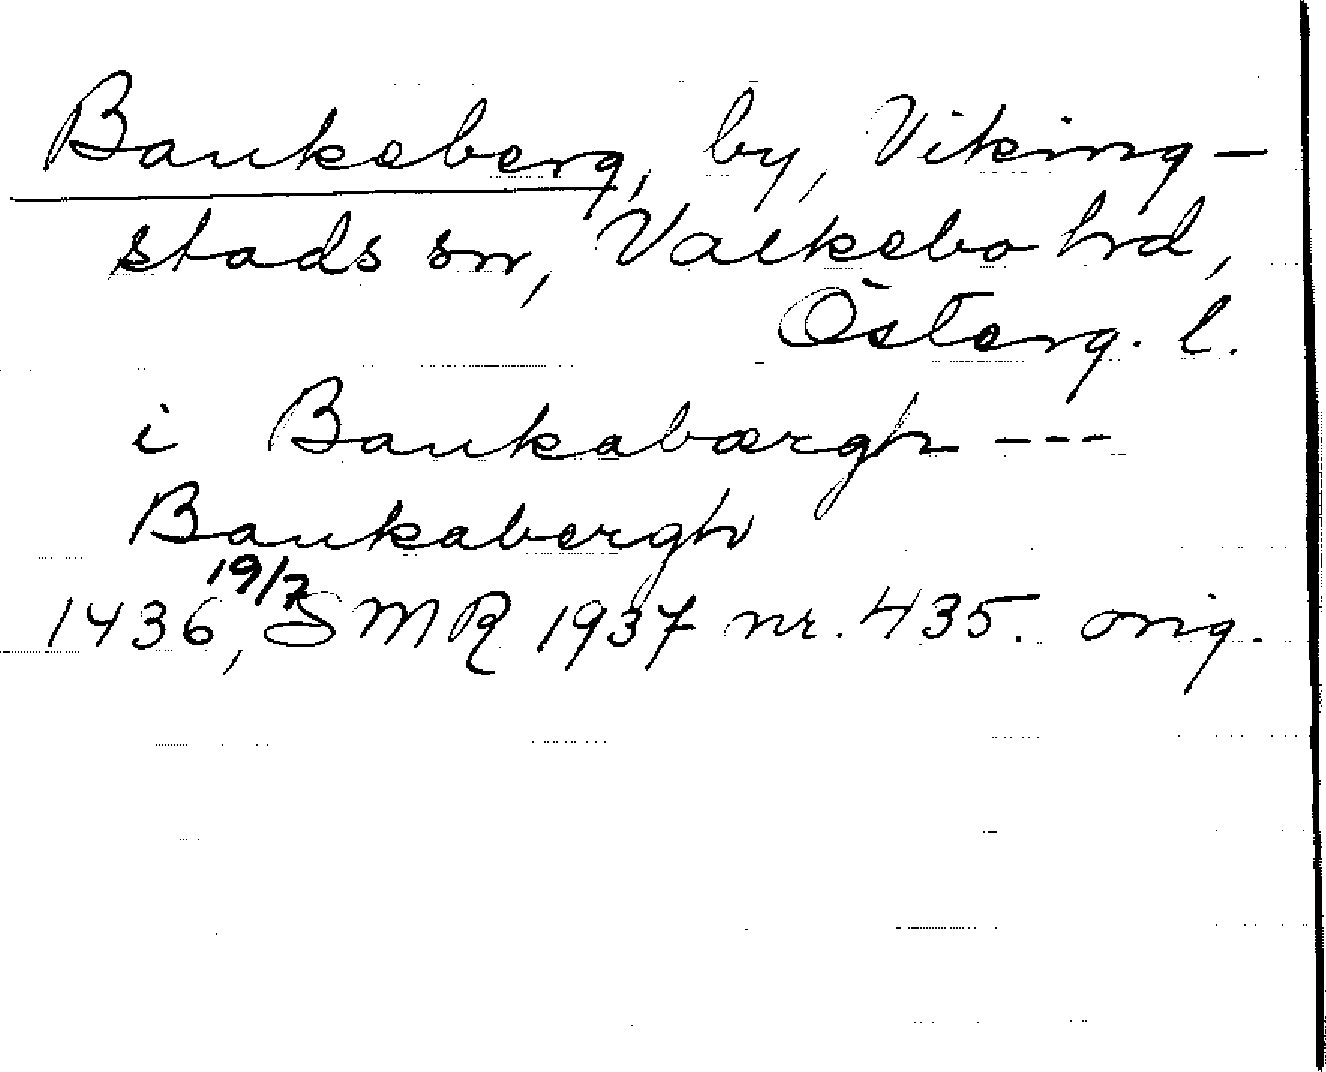 Bankeberg, by, Viking-
stads sn, Valkebo hrd,
Österg. l.
i Bankabærgh ---
Bankabergh
19/7
1436, SMR 1937 nr. 435. orig.